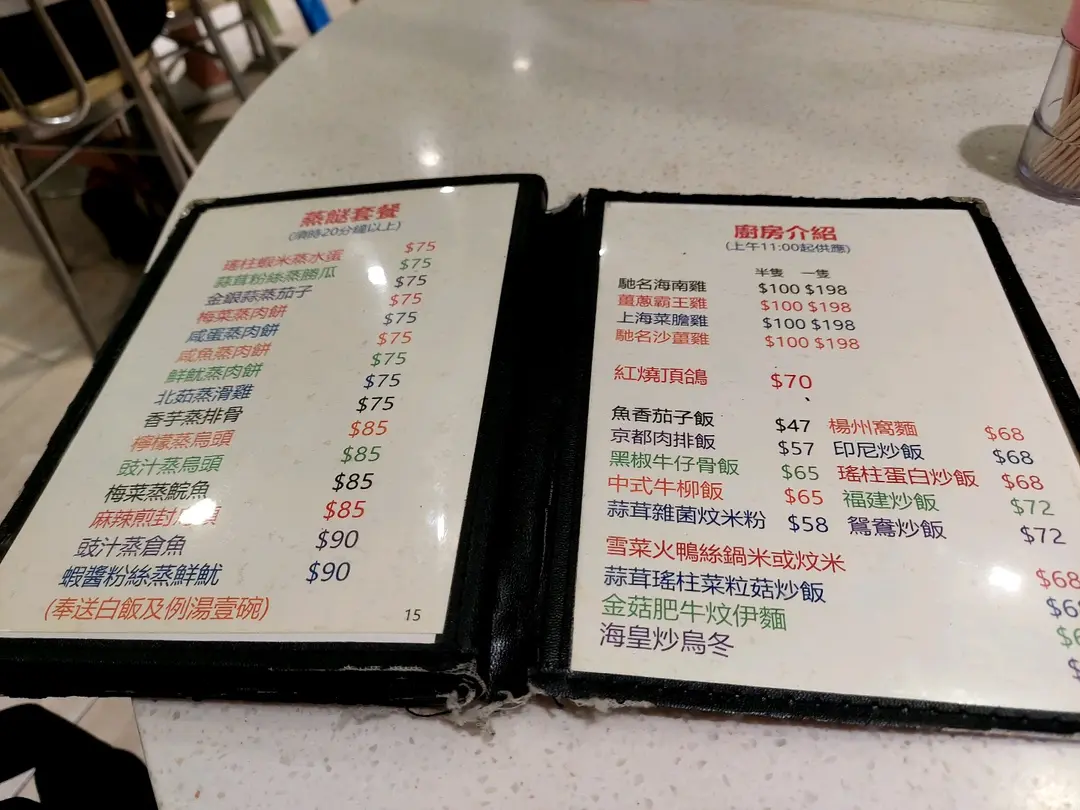 蒸餸套餐
(須時20分鐘以上)
瑤柱蝦米蒸水蛋 $75
蒜茸粉絲蒸勝瓜 $75
金銀蒜蒸茄子 $75
梅菜蒸肉餅 $75
咸蛋蒸肉餅 $75
咸魚蒸肉餅 $75
鮮魷蒸肉餅 $75
北茹蒸滑雞 $75
香芋蒸排骨 $75
檸檬蒸烏頭 $85
豉汁蒸烏頭 $85
梅菜蒸鯇魚 $85
麻辣煎封 $85
豉汁蒸倉魚 $90
蝦醬粉絲蒸鮮魷 $90
(奉送白飯及例湯壹碗)
15
廚房介紹
(上午11:00起供應)
半隻 一隻
馳名海南雞 $100 $198
薑蔥霸王雞 $100 $198
上海菜膽雞 $100 $198
馳名沙薑雞 $100 $198
紅燒頂鴿 $70
魚香茄子飯 $47 楊州窩麵 $68
京都肉排飯 $57 印尼炒飯 $68
黑椒牛仔骨飯 $65 瑤柱蛋白炒飯 $68
中式牛柳飯 $65 福建炒飯 $72
蒜茸雜菌炆米粉 $58 鴛鴦炒飯 $72
雪菜火鴨絲鍋米或炆米 $68
蒜茸瑤柱菜粒菇炒飯
金菇肥牛炆伊麵
海皇炒烏冬